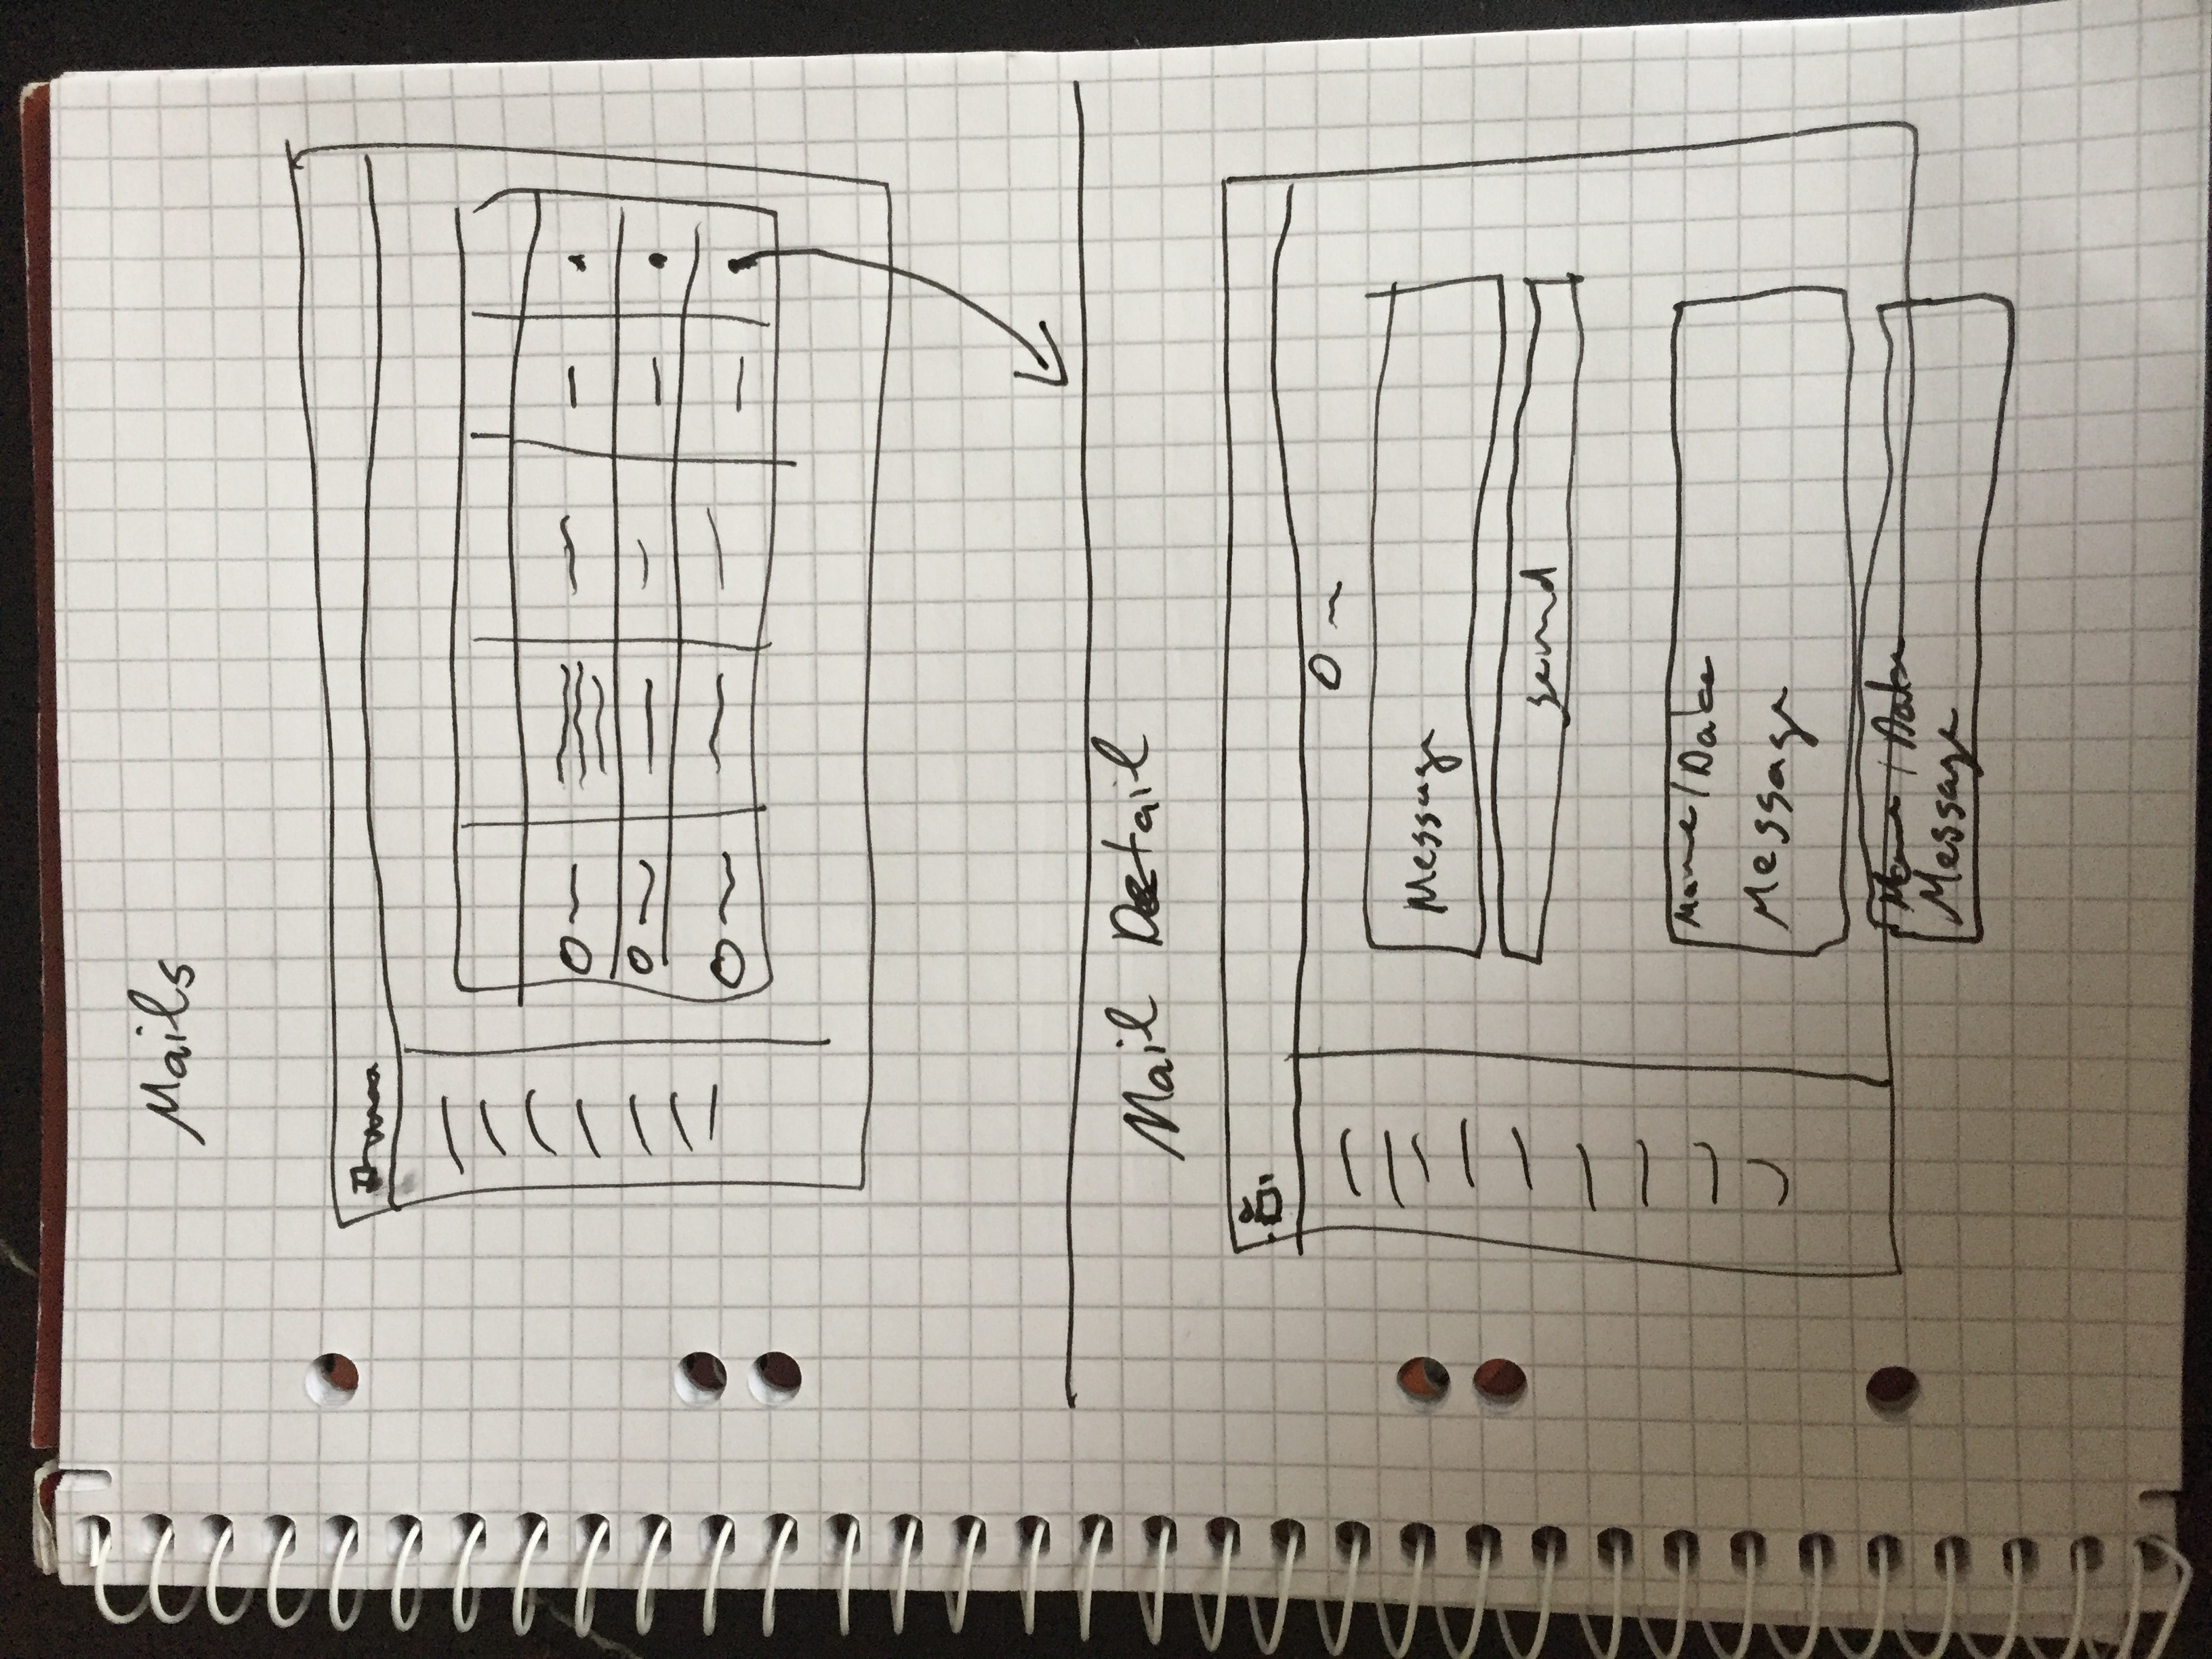 Mails
Mail Detail
Message
send
Name/Date
Message
Name/Date
Message